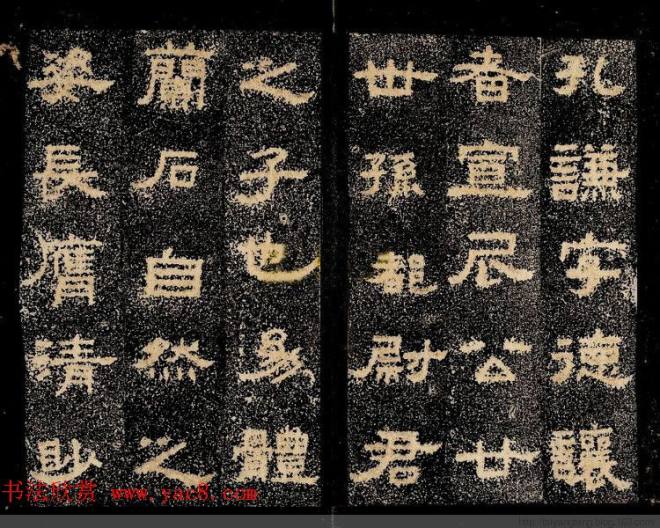 孔謙字德讓
者宣尼公廿
世孫都尉君
之子也幼體
蘭石自然之
姿長膺清眇
书法欣赏 www.yac8.com